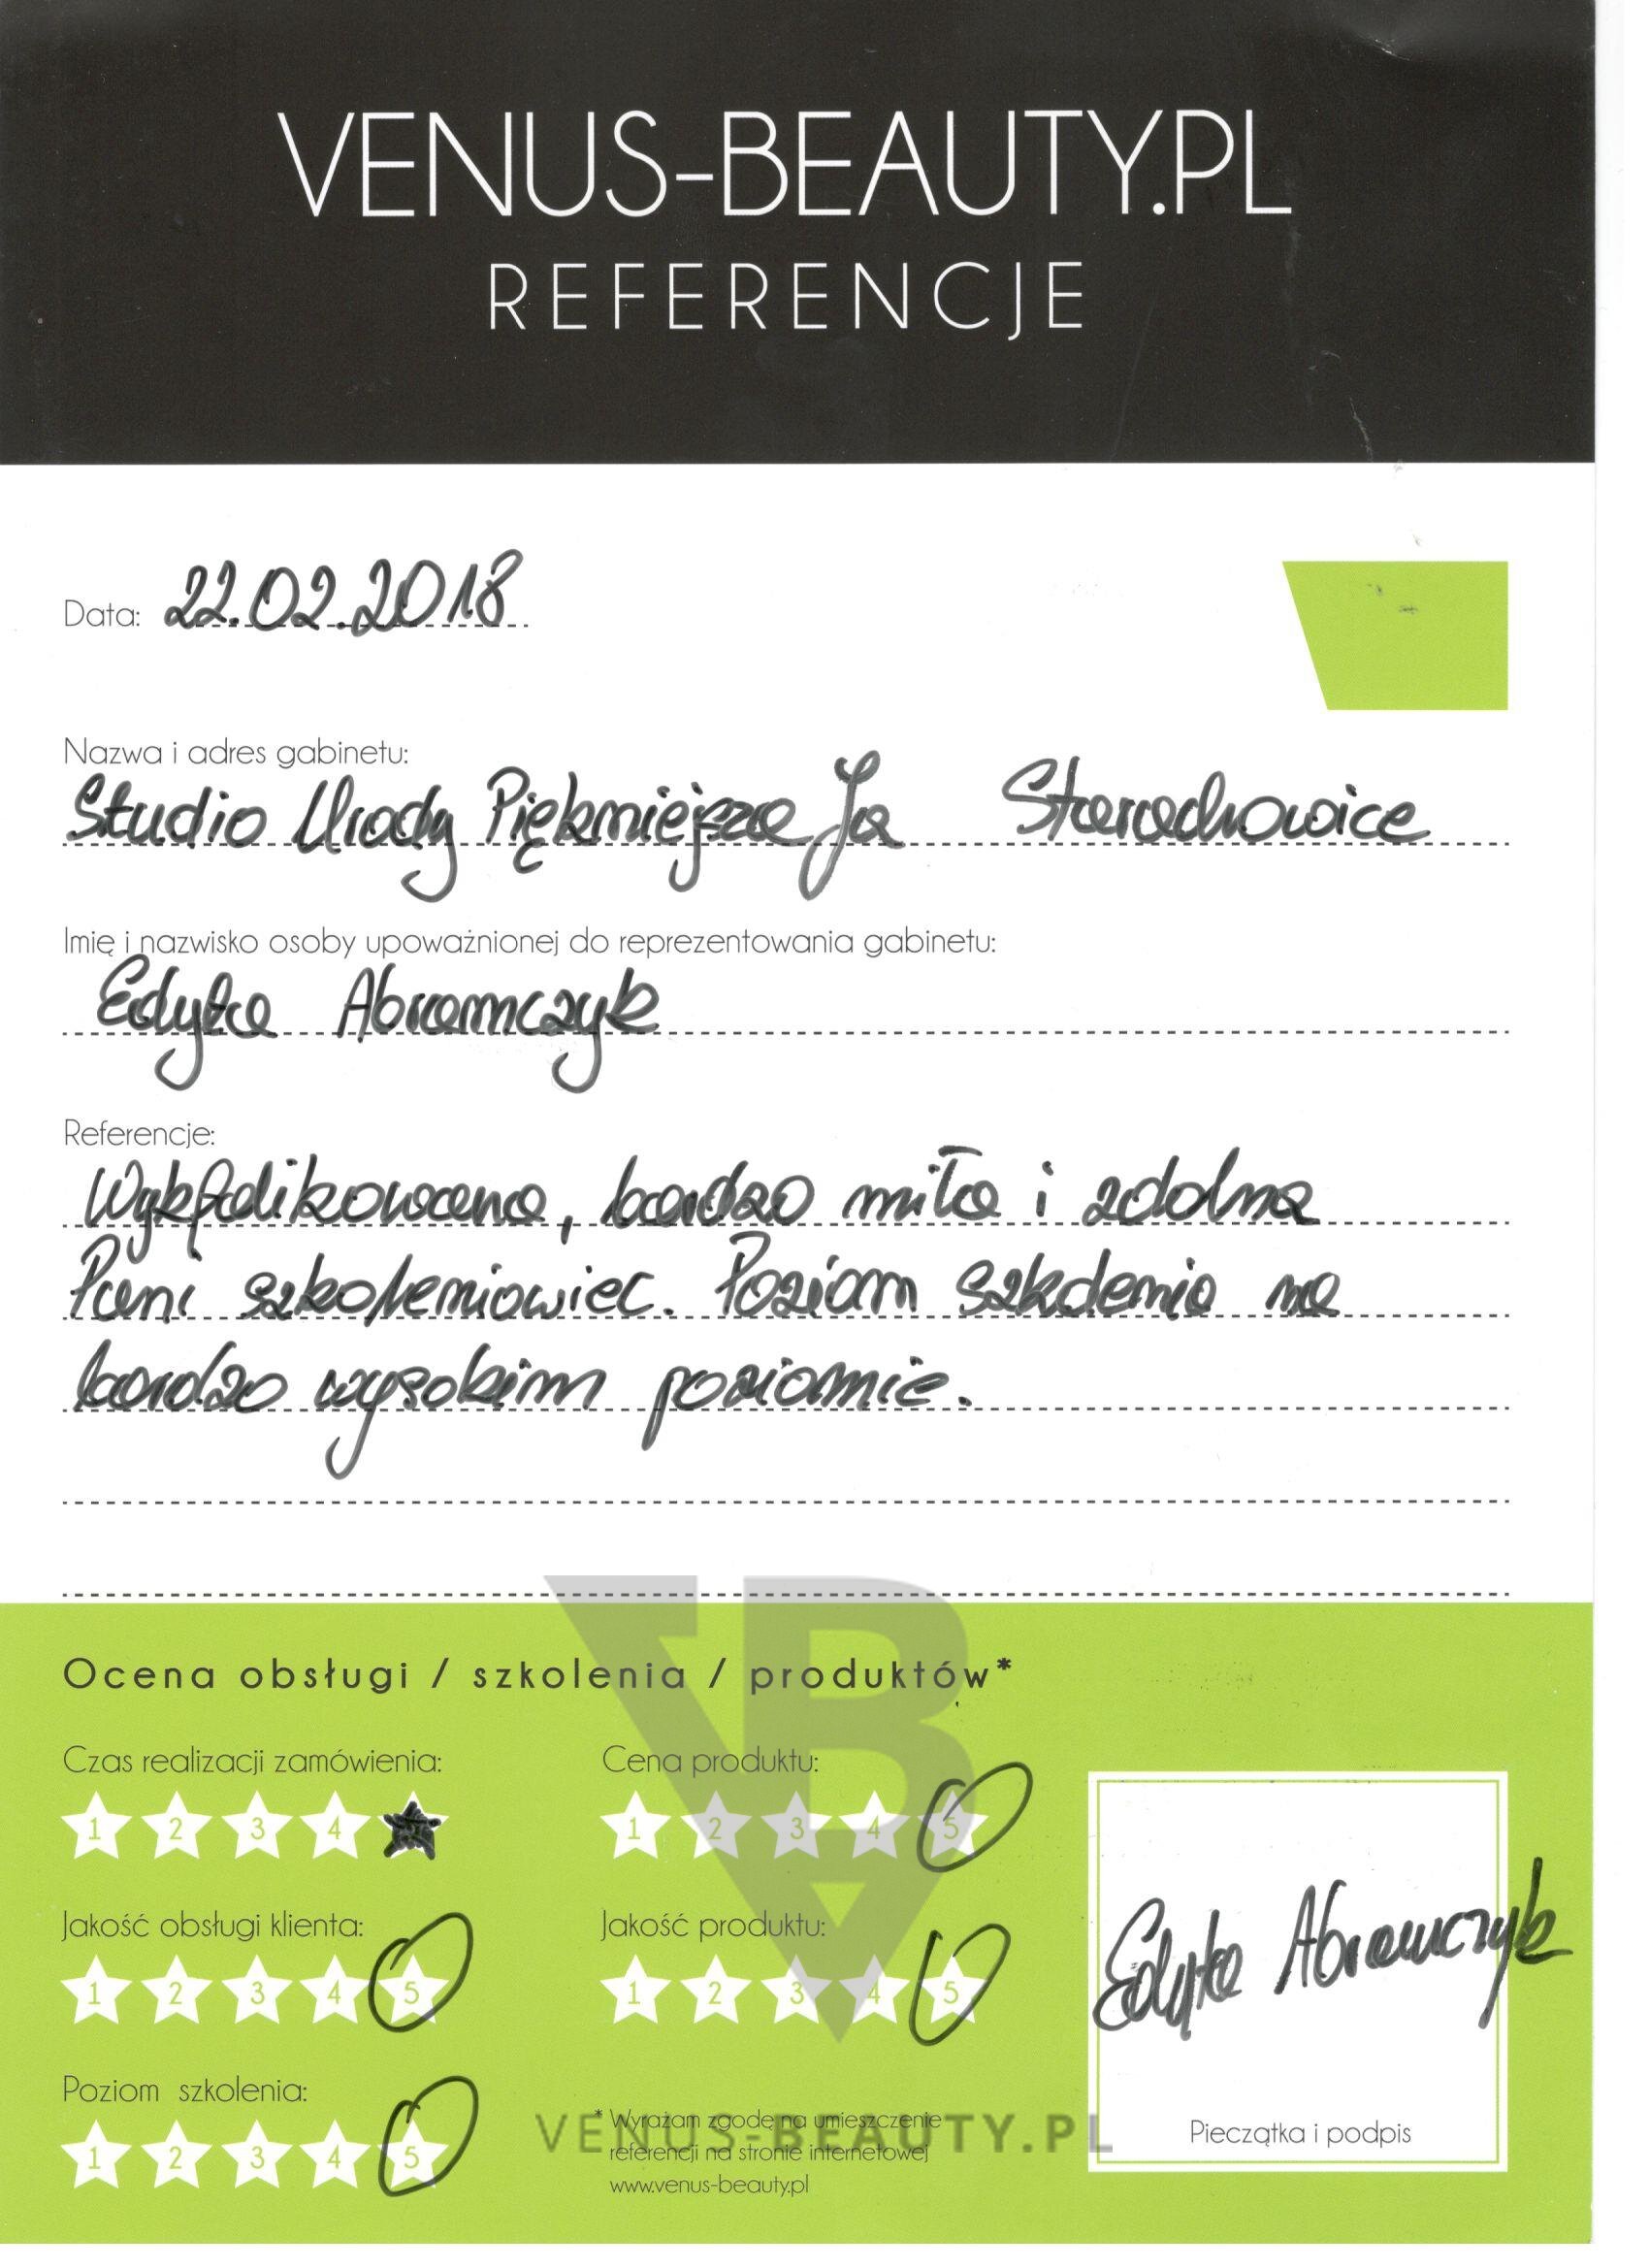 VENUS-BEAUTY.PL
REFERENCJE
Data: 22.02.2018
Nazwa i adres gabinetu:
Studio Urody Piękniejsza Ja Starachowice
Imię i nazwisko osoby upoważnionej do reprezentowania gabinetu:
Edyta Abramczyk
Referencje:
Wykfalikowana, bardzo miła i zdolna
Pani szkoleniowiec. Poziom szkolenia na
bardzo wysokim poziomie.
Ocena obsługi / szkolenia / produktów*
Czas realizacji zamówienia:
1 2 3 4
Cena produktu:
1 2 3 4 5
Jakość obsługi klienta:
1 2 3 4 5
Jakość produktu:
1 2 3 4 5
Edyta Abramczyk
Poziom szkolenia:
1 2 3 4 5
* Wyrażam zgodę na umieszczenie
referencji na stronie internetowej
www.venus-beauty.pl
Pieczątka i podpis
VB
VENUS-BEAUTY.PL